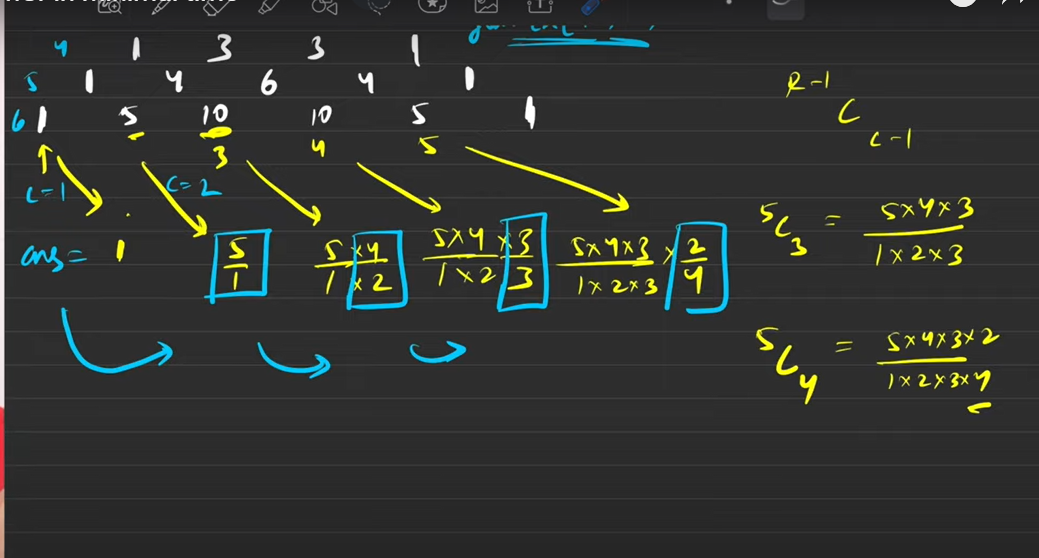 4 1 3 3 1
5 1 4 6 4 1
6 1 5 10 10 5 1
3 4 5
R-1
C
c-1
c=1 c=2
ans = 1 5/1 5×4/1×2 5×4×3/1×2×3 5×4×3/1×2×3 × 2/4
⁵C₃ = 5×4×3/1×2×3
⁵C₄ = 5×4×3×2/1×2×3×4